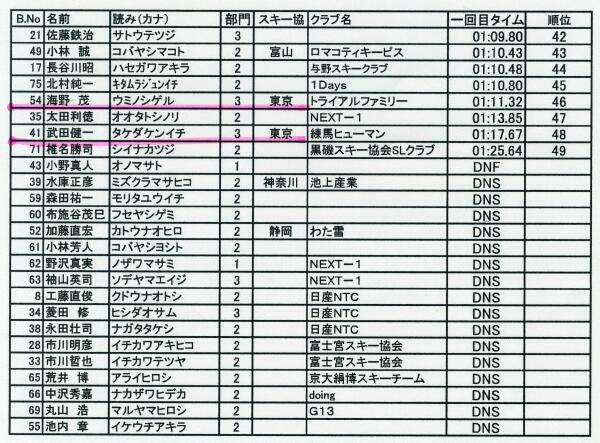 B.No 名前 読み(カナ) 部門 スキー協 クラブ名 一回目タイム 順位
21 佐藤鉄治 サトウテツジ 3 01:09.80 42
49 小林 誠 コバヤシマコト 2 富山 ロマコティキービス 01:10.43 43
17 長谷川昭 ハセガワアキラ 2 与野スキークラブ 01:10.48 44
75 北村純一 キタムラジュンイチ 2 1Days 01:10.80 45
54 海野 茂 ウミノシゲル 3 東京 トライアルファミリー 01:11.32 46
35 太田利徳 オオタトシノリ 2 NEXTー1 01:13.85 47
41 武田健一 タケダケンイチ 3 東京 練馬ヒューマン 01:17.67 48
71 椎名勝司 シイナカツジ 2 黒磯スキー協会SLクラブ 01:25.64 49
43 小野真人 オノマサト 1 DNF
39 水庫正彦 ミズクラマサヒコ 2 神奈川 池上産業 DNS
59 森田祐一 モリタユウイチ 2 DNS
60 布施谷茂巳 フセヤシゲミ 2 DNS
52 加藤直宏 カトウナオヒロ 2 静岡 わた雪 DNS
61 小林芳人 コバヤシヨシト 2 DNS
62 野沢真実 ノザワマサミ 1 NEXTー1 DNS
63 袖山英司 ソデヤマエイジ 3 NEXTー1 DNS
8 工藤直俊 クドウナオトシ 2 日産NTC DNS
34 菱田 修 ヒシダオサム 3 日産NTC DNS
38 永田壮司 ナガタタケシ 2 日産NTC DNS
28 市川明彦 イチカワアキヒコ 2 富士宮スキー協会 DNS
33 市川哲也 イチカワテツヤ 2 富士宮スキー協会 DNS
65 荒井 博 アライヒロシ 2 京大絹博スキーチーム DNS
66 中沢秀嘉 ナカザワヒデカ 2 doing DNS
69 丸山 浩 マルヤマヒロシ 2 G13 DNS
55 池内 章 イケウチアキラ 2 DNS